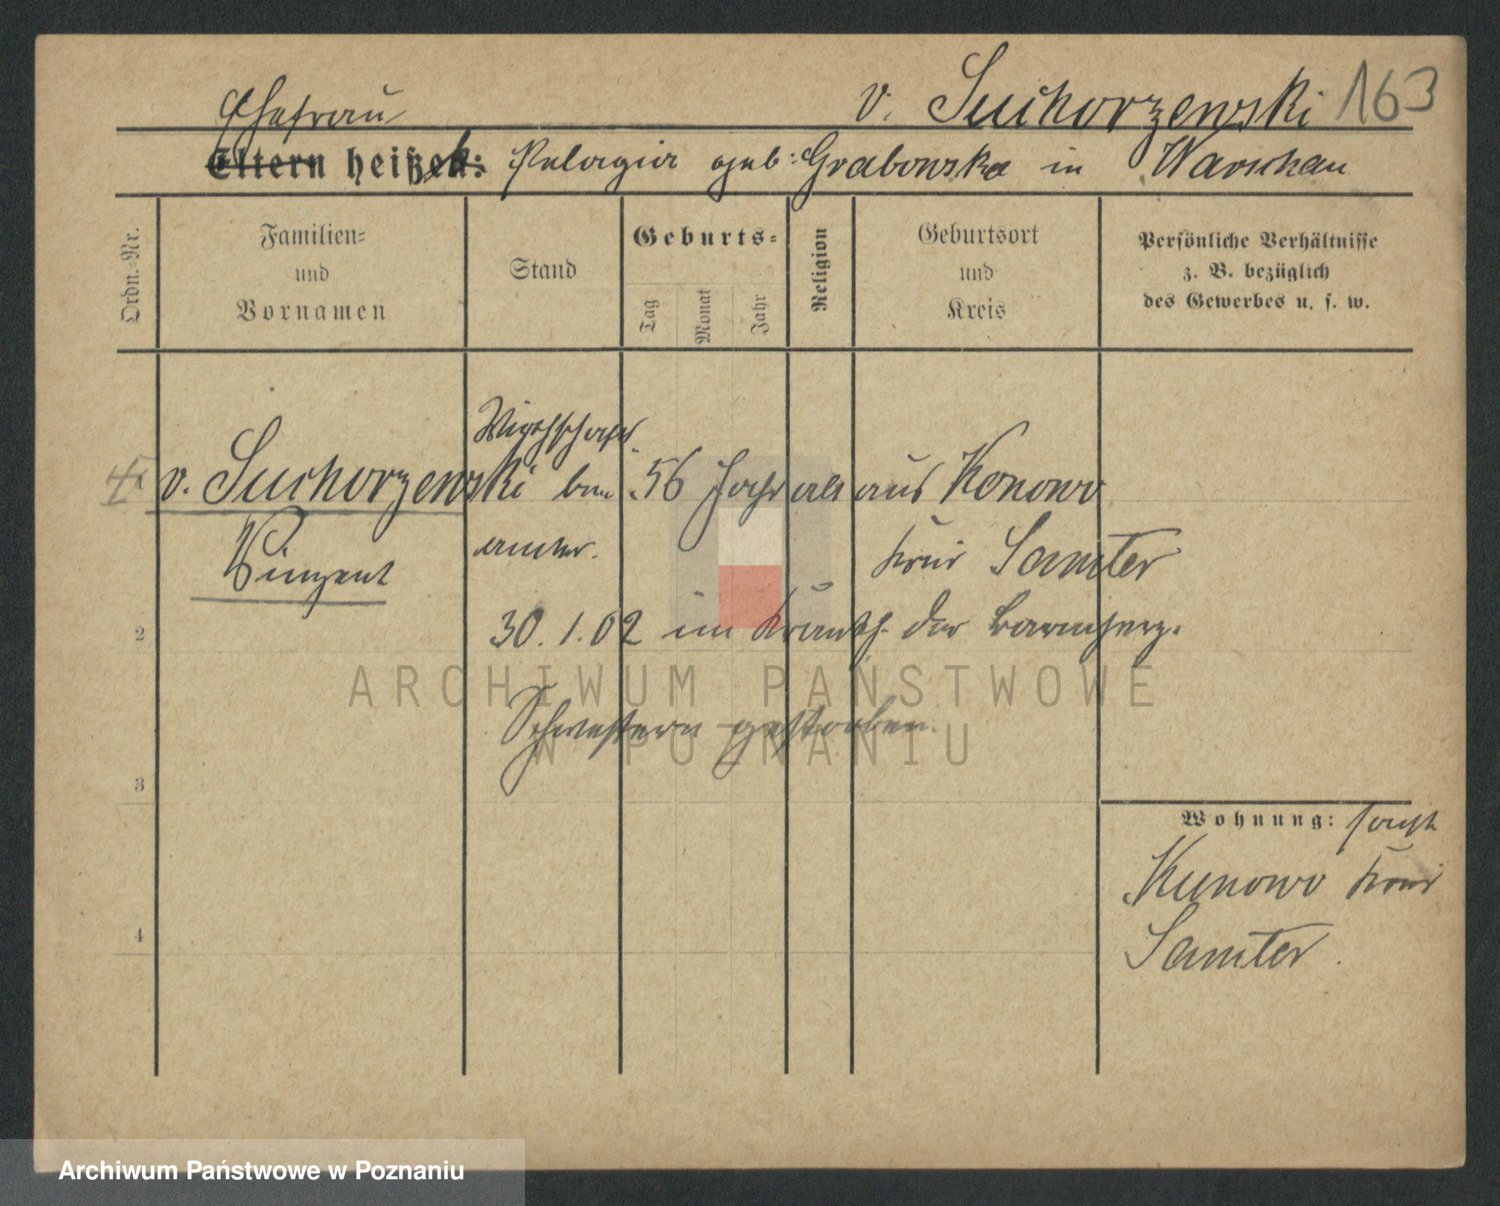 v. Suchorzewski 163
Ehefrau
Eltern heißen: Pelagia geb: Grabowska in Warschau
Ordn.-Nr.
Familien-
und
Vornamen
Stand
Geburts-
Tag
Monat
Jahr
Religion
Geburtsort
und
Kreis
Persönliche Verhältnisse
z. B. bezüglich
des Gewerbes u. s. w.
Wirthschafts
v. Suchorzewski beamter. 56 Jahr alt aus Konowo
Vinzent
Kreis Samter
2
30. 1. 02 im Krankh. der Barmherz.
Schwestern gestorben.
3
Wohnung: sonst
Kunowo Kreis
Samter.
4
ARCHIWUM PAŃSTWOWE
W POZNANIU
Archiwum Państwowe w Poznaniu